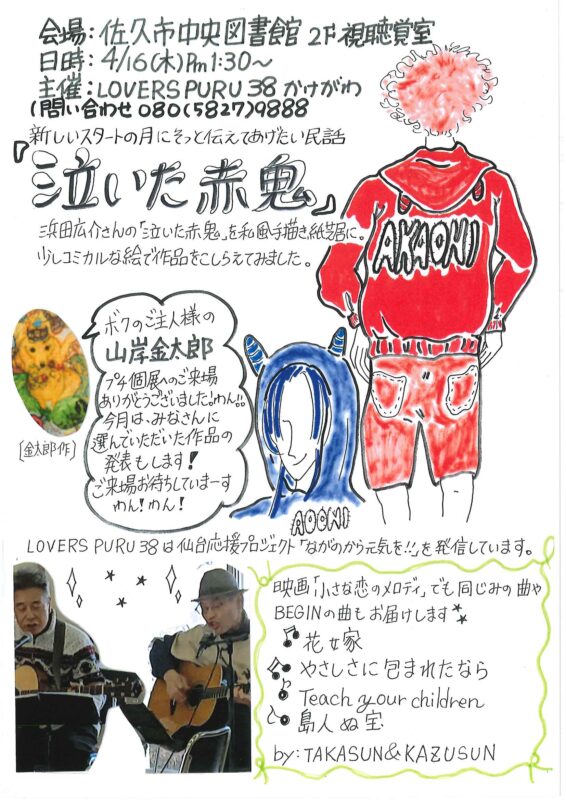 会場：佐久市中央図書館 2F視聴覚室
日時：4/16(木)Pm1:30〜
主催：LOVERS PURU 38 かけがわ
(問い合わせ 080(5827)9888
新しいスタートの月にそっと伝えてあげたい民話
『泣いた赤鬼』
浜田広介さんの「泣いた赤鬼」を和風手描き紙芝居に。
少しコミカルな絵で作品をこしらえてみました。
AKAONI
ボクのご主人様の
山岸金太郎
プチ個展へのご来場
ありがとうございました!わん!!
今月は、みなさんに
選んでいただいた作品の
発表もします!
ご来場お待ちしていまーす
わん!わん!
[金太郎作]
AOONI
LOVERS PURU 38は仙台応援プロジェクト「ながのから元気を!!」を発信しています。
映画「小さな恋のメロディ」でも同じみの曲や
BEGINの曲もお届けします
花女家
やさしさに包まれたなら
Teach your children
島人ぬ宝
by:TAKASUN&KAZUSUN